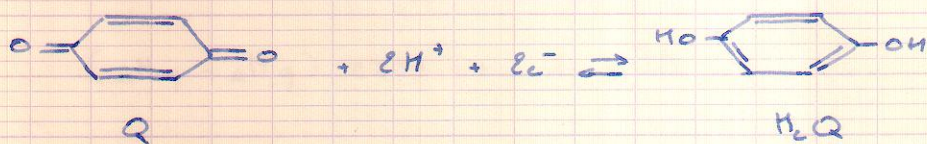 O = = O + 2H⁺ + 2e⁻ ⇌ HO - - OH
Q H₂Q